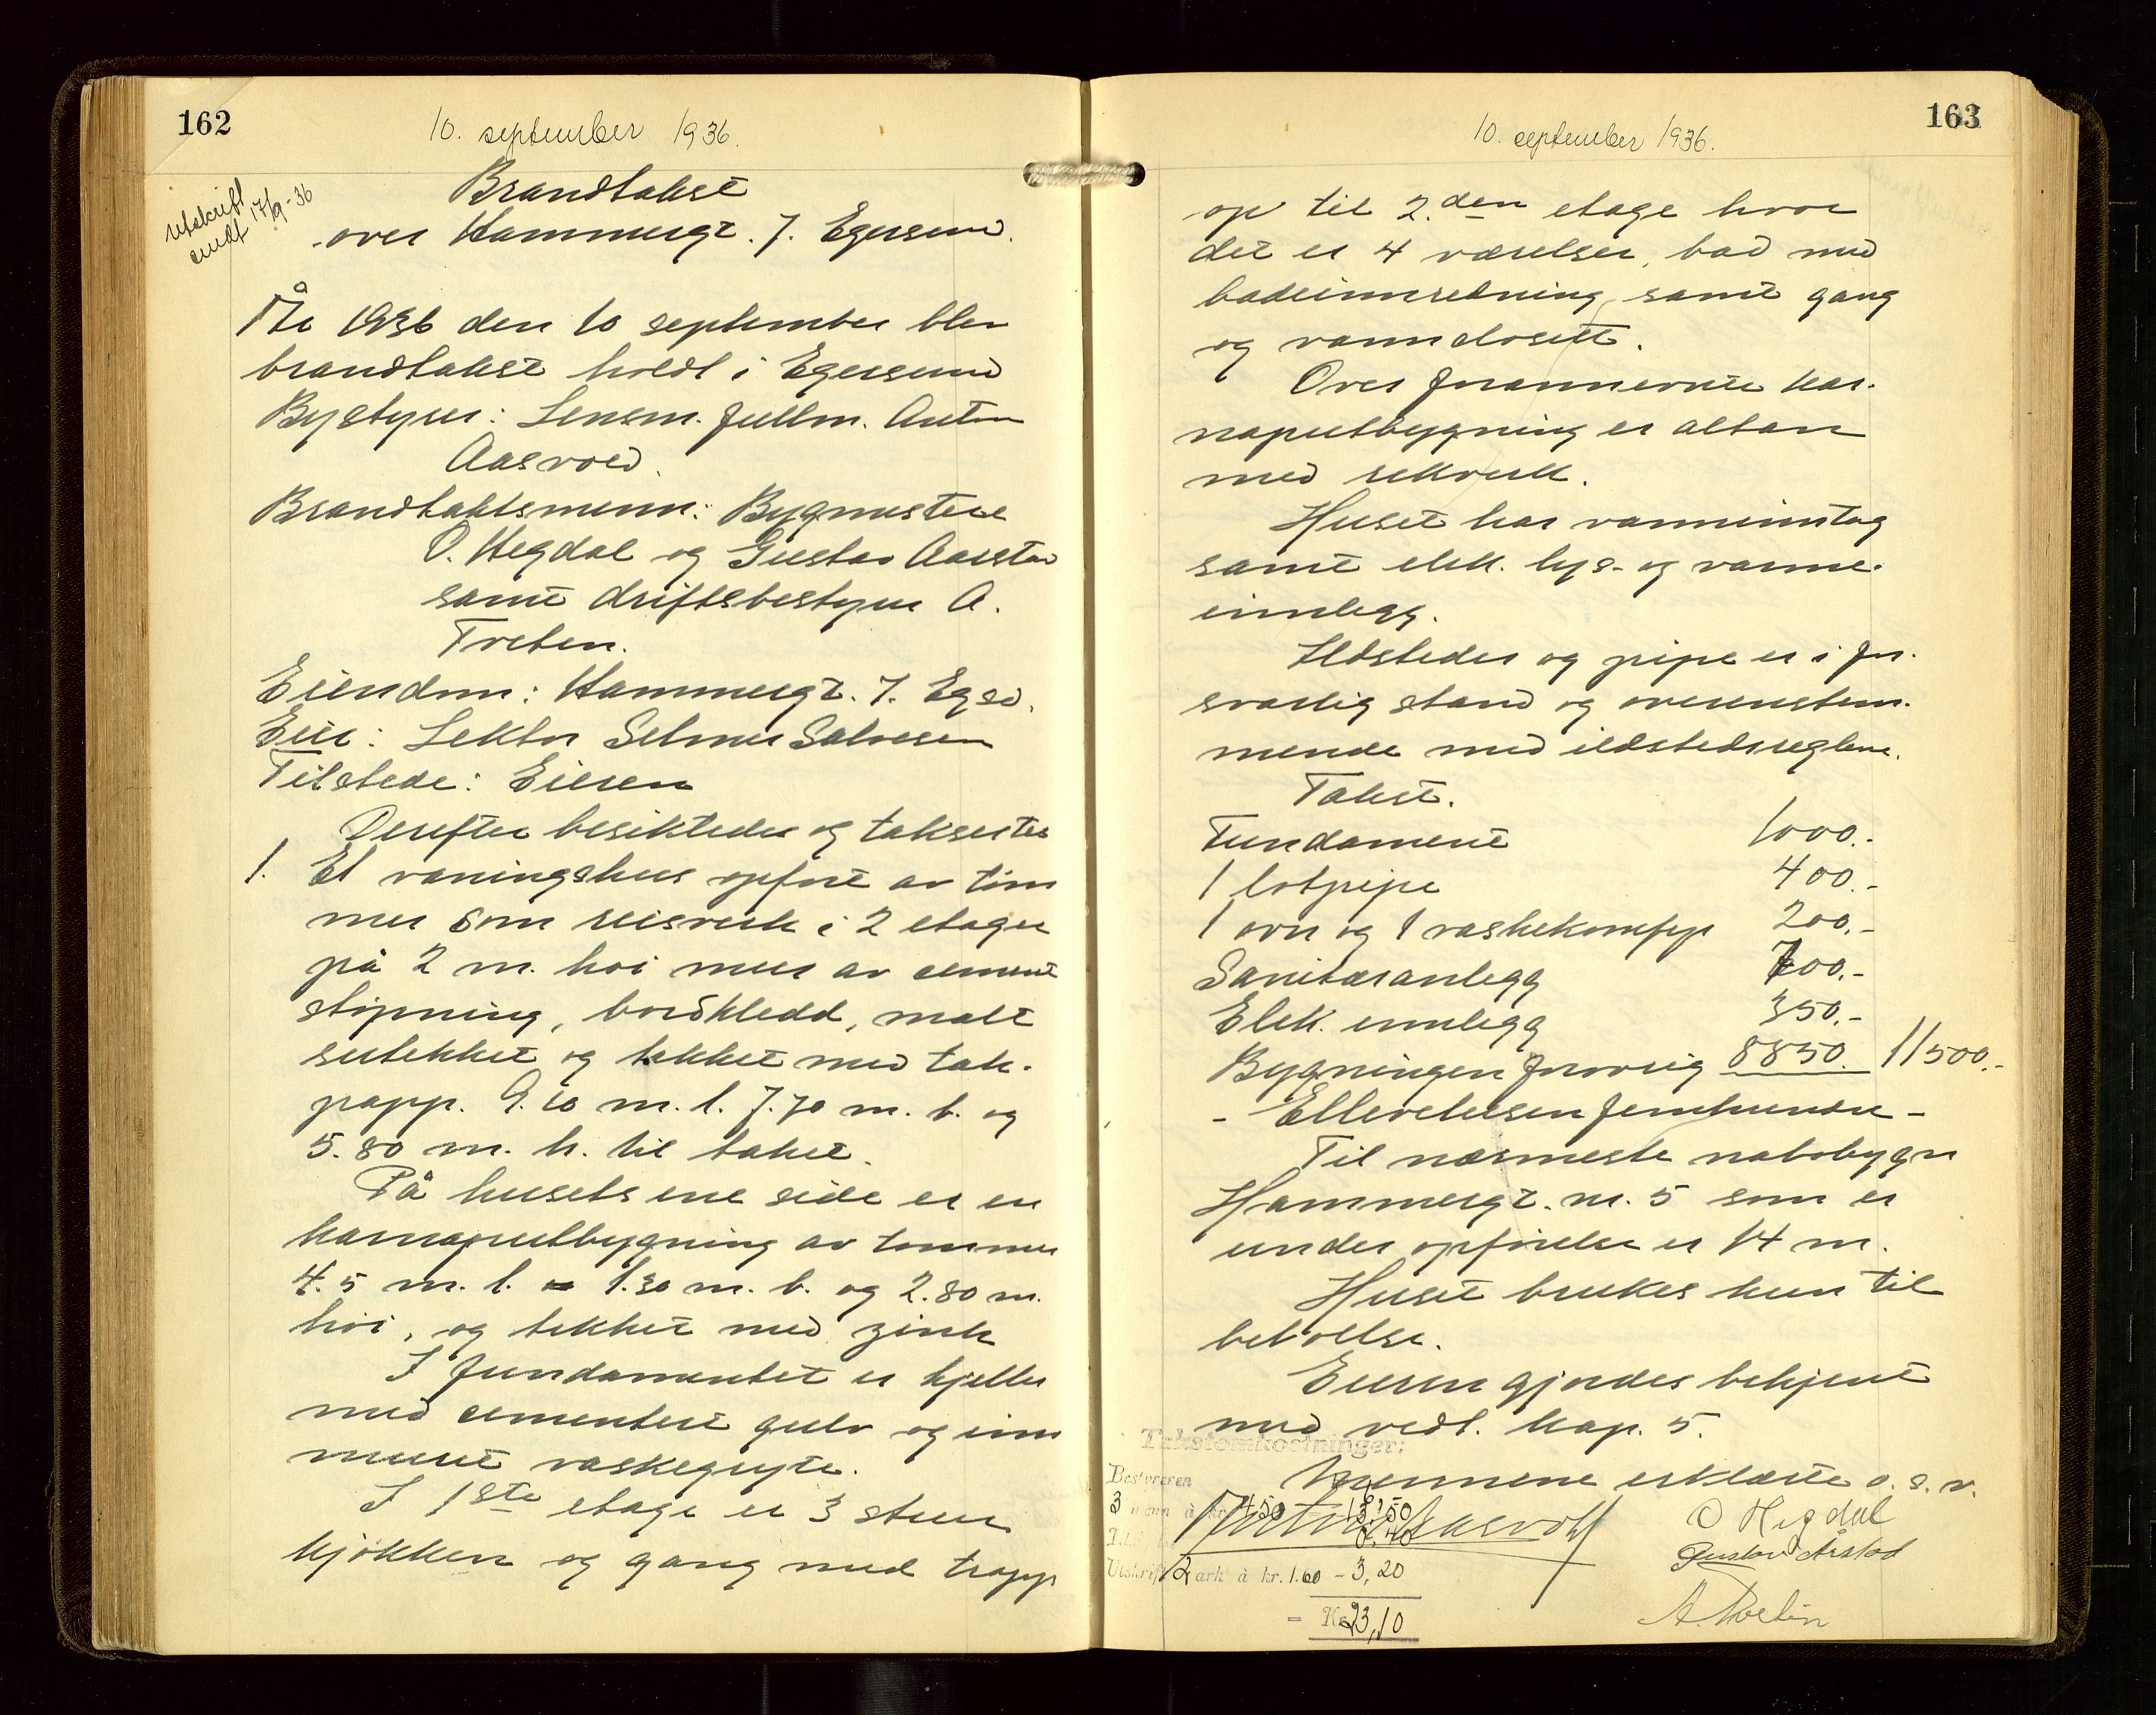 162
10. september 1936.
Utskrift
sendt 17/9-36
Brandtakst
over Hammergt. 7. Egersund.
År 1936 den 10 september blev
brandtakst holdt i Egersund
Bystyrer: Lensm. fullm. Anton
Aasvold.
Brandtakstmenn: Bygmestere
O. Hegdal og Gustav Aarstad
samt driftsbestyrer A.
Tveten.
Eiendom: Hammergt. 7. Egsd.
Eier: Lektor Selmer Salvesen
Tilstede: Eieren
Derefter besiktedes og taksertes
1. Et vaningshus opført av tøm
mer som reisverk i 2 etager
på 2 m. høi mur av cement
støpning, bordkledd, malt
sutekket og tekket med tak-
papp. 9.10 m. l. 7.70 m. b. og
5.80 m. h. til taket.
På husets ene side er en
karnaputbygning av tømmer
4.5 m. l. 1.30 m. b. og 2.80 m.
høi, og tekket med zink
I fundamentet er kjeller
med cementert gulv og inn
muret vaskegryte.
I 1ste etage er 3 stuer
kjøkken og gang med trapp
163
10. september 1936.
op til 2.den etage hvor
det er 4 værelser, bad med
badeinnretning, samt gang
og vannclosett.
Over frannevnte kar-
naputbygning er altan
med rekverk.
Huset har vanninntag
samt elek. lys- og varme-
innlegg.
Ildsteder og pipe er i for-
svarlig stand og overenstem-
mende med ildstedsreglene.
Takst.
Fundament 1000.-
1 lotpipe 400.-
1 ovn og 1 vaskekomfyr 200.-
Sanitæranlegg 700.-
Elek. innlegg 350.-
Bygningen forøvrig 8850. 11500.-
- Ellevetusen femhundre -
Til nærmeste nabobygn
Hammergt. nr. 5 som er
under opførelse er 14 m.
Huset brukes kun til
beboelse.
Eieren gjordes bekjent
med vedt. kap. 5.
Takstomkostninger:
Mennene erklærte o. s. v.
Bestyreren 6,
3 menn à kr. 4.50 13,50
0.40
Anton Aasvold
O Hegdal
Gustav Årstad
Utskrift 2 ark à kr. 1.60 - 3,20
A. Tveten
= Kr. 23,10